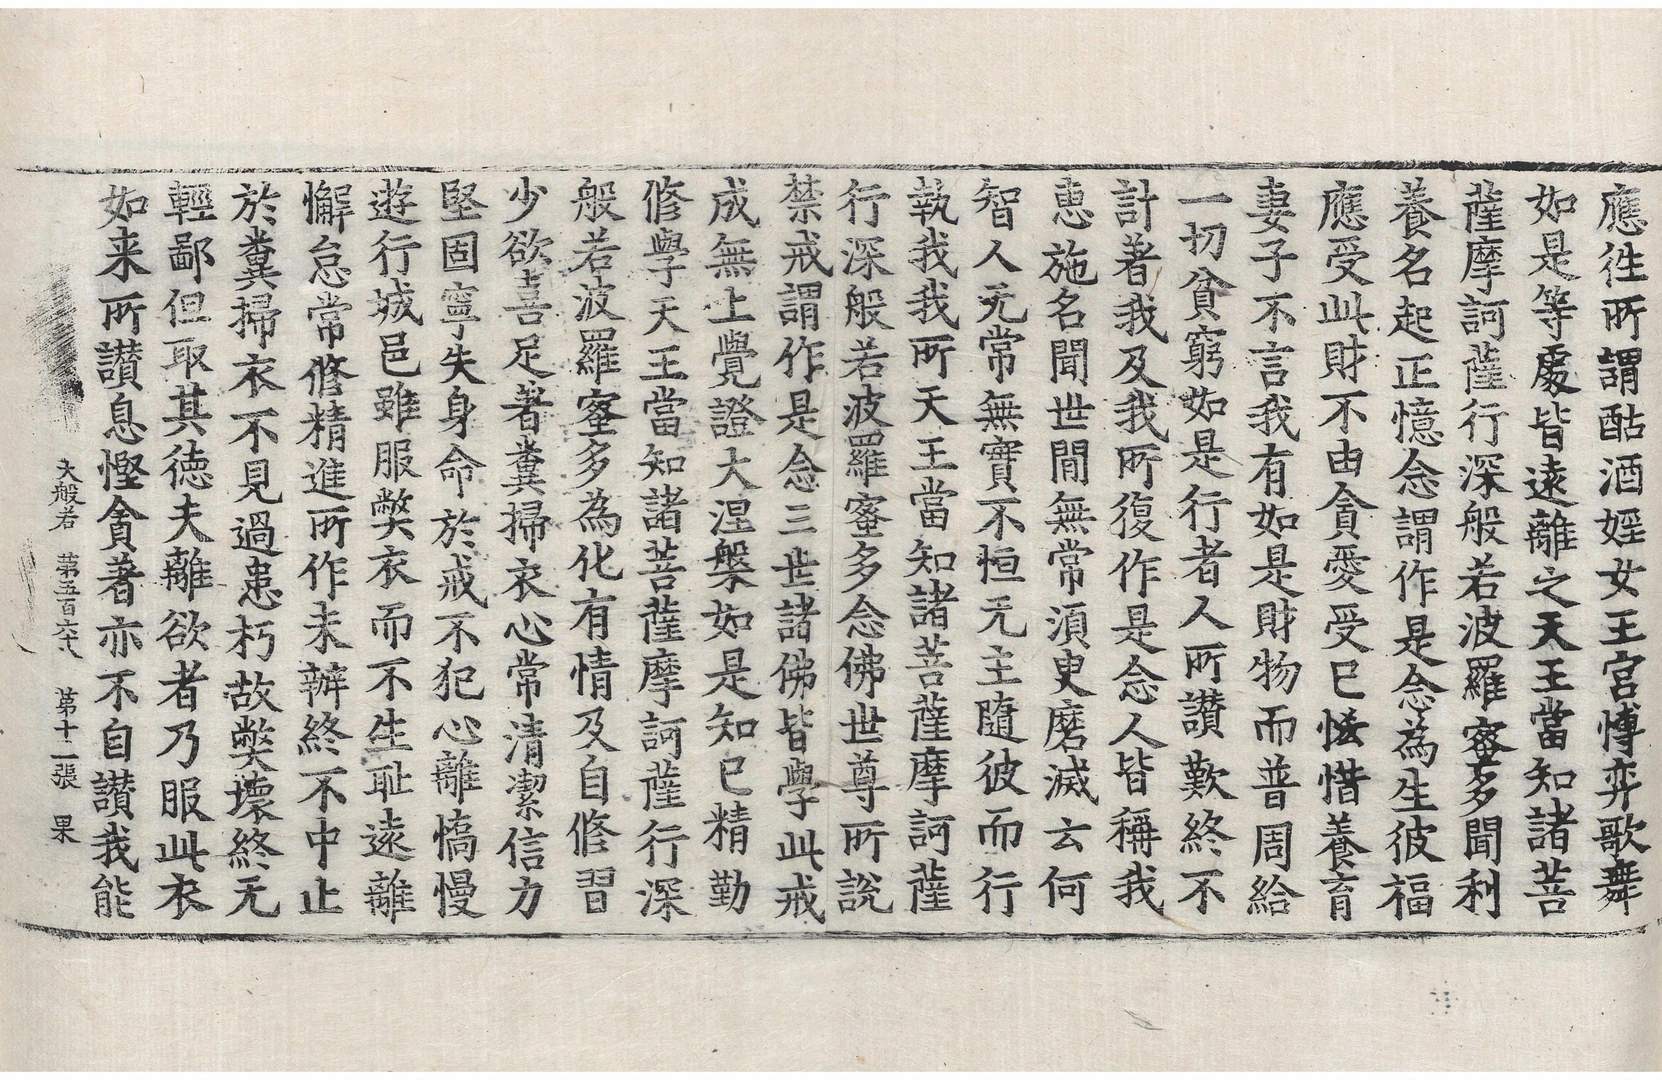 應徃所謂酤酒婬女王宮愽弈歌舞
如是等處皆遠離之天王當知諸菩
薩摩訶薩行深般若波羅蜜多聞利
養名起正憶念謂作是念為生彼福
應受此財不由貪愛受已恡惜養育
妻子不言我有如是財物而普周給
一切貧窮如是行者人所讃歎終不
計著我及我所復作是念人皆稱我
恵施名聞世間無常湏臾磨滅云何
智人无常無實不恒无主隨彼而行
執我我所天王當知諸菩薩摩訶薩
行深般若波羅蜜多念佛世尊所說
禁戒謂作是念三世諸佛皆學此戒
成無上覺證大涅槃如是知已精勤
修學天王當知諸菩薩摩訶薩行深
般若波羅蜜多為化有情及自修習
少欲喜足著糞掃衣心常清潔信力
堅固寧失身命於戒不犯心離憍慢
遊行城邑雖服弊衣而不生耻遠離
懈怠常修精進所作未辦終不中止
於糞掃衣不見過患朽故弊壞終无
輕鄙但取其徳夫離欲者乃服此衣
如来所讃息慳貪著亦不自讃我能
大般若 第五百六十八 第十二張 果